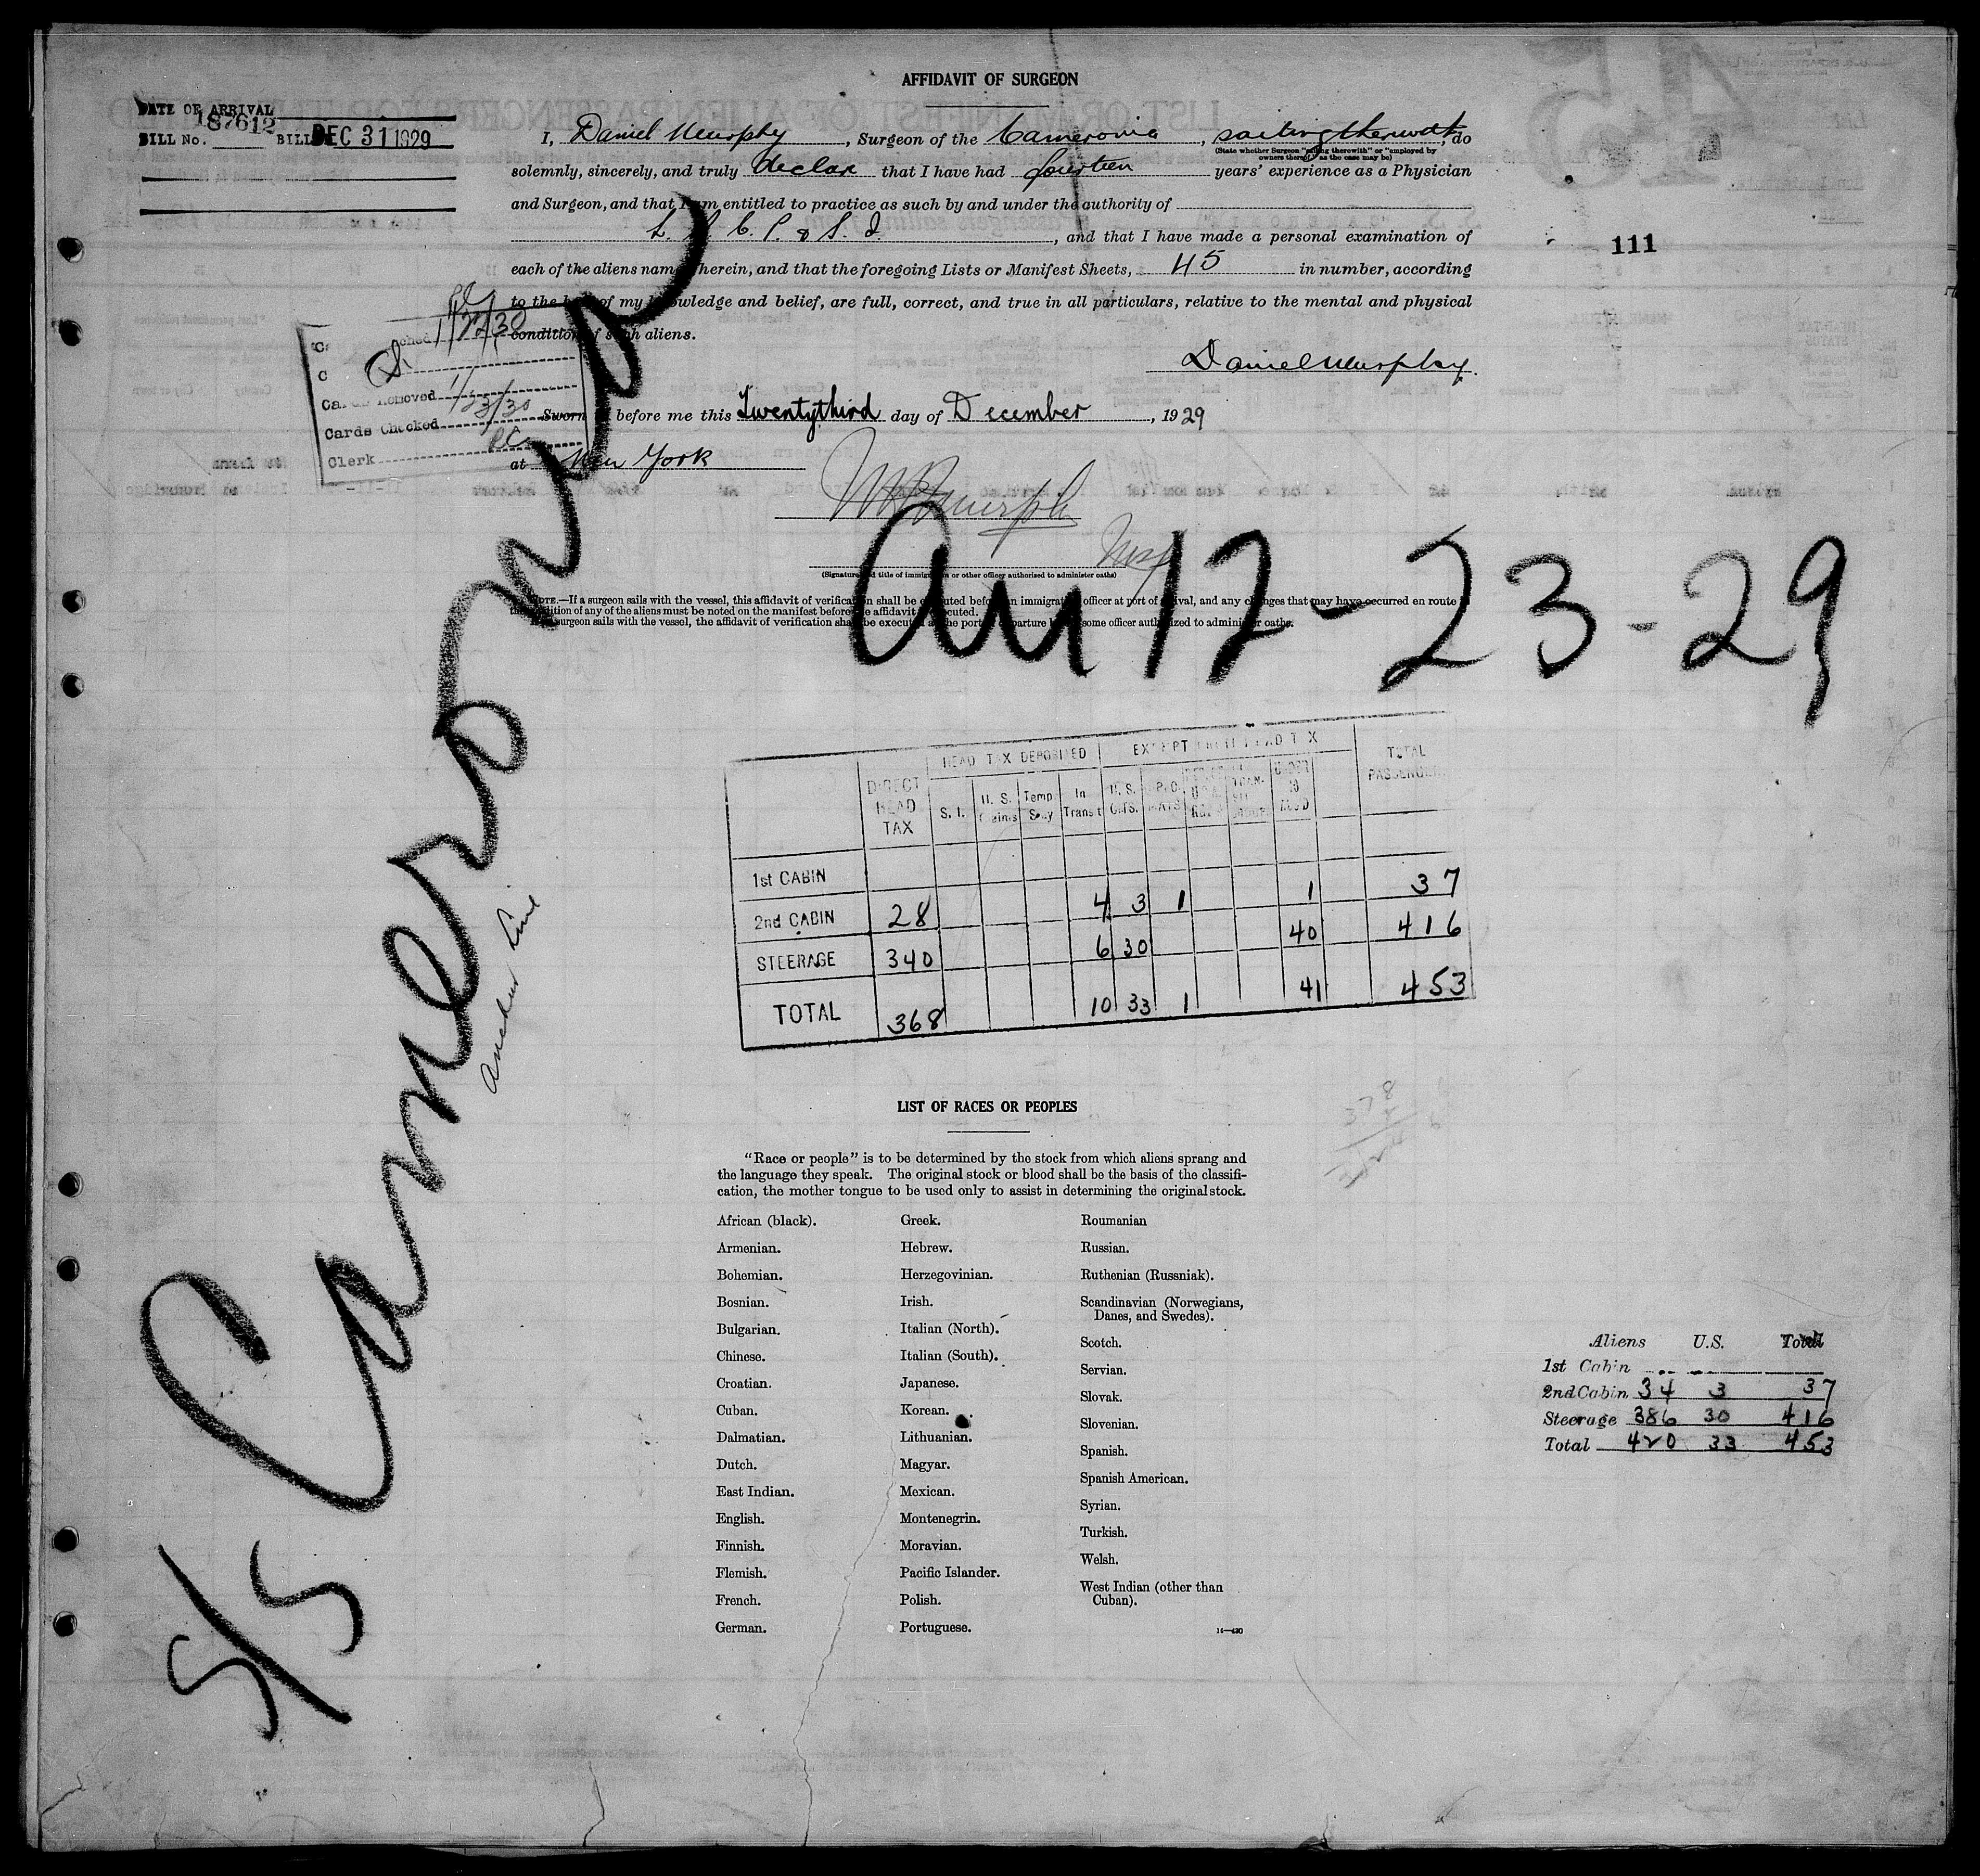 AFFIDAVIT OF SURGEON
DATE OF ARRIVAL
187612
BILL No. BILL DEC 31 1929
I, Daniel Murphy, Surgeon of the Cameronia, sailing therewith, do
(State whether Surgeon "sailing therewith" or "employed by
owners thereof," as the case may be)
solemnly, sincerely, and truly declare that I have had fourteen years' experience as a Physician
and Surgeon, and that I am entitled to practice as such by and under the authority of
L. R. C. P. & S. I., and that I have made a personal examination of
each of the aliens named herein, and that the foregoing Lists or Manifest Sheets, 45 in number, according
to the best of my knowledge and belief, are full, correct, and true in all particulars, relative to the mental and physical
condition of such aliens.
111
Daniel Murphy.
1/22/30
Cards Removed 1/23/30
Cards Checked
Clerk
Sworn before me this Twentythird day of December, 1929
at New York
(Signature and title of immigration or other officer authorized to administer oaths)
NOTE.—If a surgeon sails with the vessel, this affidavit of verification shall be executed before an immigration officer at port of arrival, and any changes that may have occurred en route
condition of any of the aliens must be noted on the manifest before the affidavit executed.
surgeon sails with the vessel, the affidavit of verification shall be executed at the port of departure some officer authorized to administer oaths.
S/S Cameronia
Anchor Line
12-23-29
HEAD TAX DEPOSITED EXEMPT FROM HEAD TAX
DIRECT HEAD TAX S. I. U. S. Claims Temp. Stay In Transit U. S. Cits. TOTAL PASSENGERS
1st CABIN
2nd CABIN 28 4 3 1 1 37
STEERAGE 340 6 30 40 416
TOTAL 368 10 33 1 41 453
LIST OF RACES OR PEOPLES
378
"Race or people" is to be determined by the stock from which aliens sprang and
the language they speak. The original stock or blood shall be the basis of the classifi-
cation, the mother tongue to be used only to assist in determining the original stock.
African (black).
Armenian.
Bohemian.
Bosnian.
Bulgarian.
Chinese.
Croatian.
Cuban.
Dalmatian.
Dutch.
East Indian.
English.
Finnish.
Flemish.
French.
German.
Greek.
Hebrew.
Herzegovinian.
Irish.
Italian (North).
Italian (South).
Japanese.
Korean.
Lithuanian.
Magyar.
Mexican.
Montenegrin.
Moravian.
Pacific Islander.
Polish.
Portuguese.
Roumanian
Russian.
Ruthenian (Russniak).
Scandinavian (Norwegians,
Danes, and Swedes).
Scotch.
Servian.
Slovak.
Slovenian.
Spanish.
Spanish American.
Syrian.
Turkish.
Welsh.
West Indian (other than
Cuban).
Aliens U.S. Total
1st Cabin
2nd Cabin 34 3 37
Steerage 386 30 416
Total 420 33 453